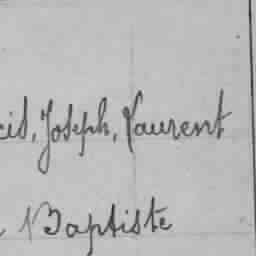 cis, Joseph, Laurent
Baptiste